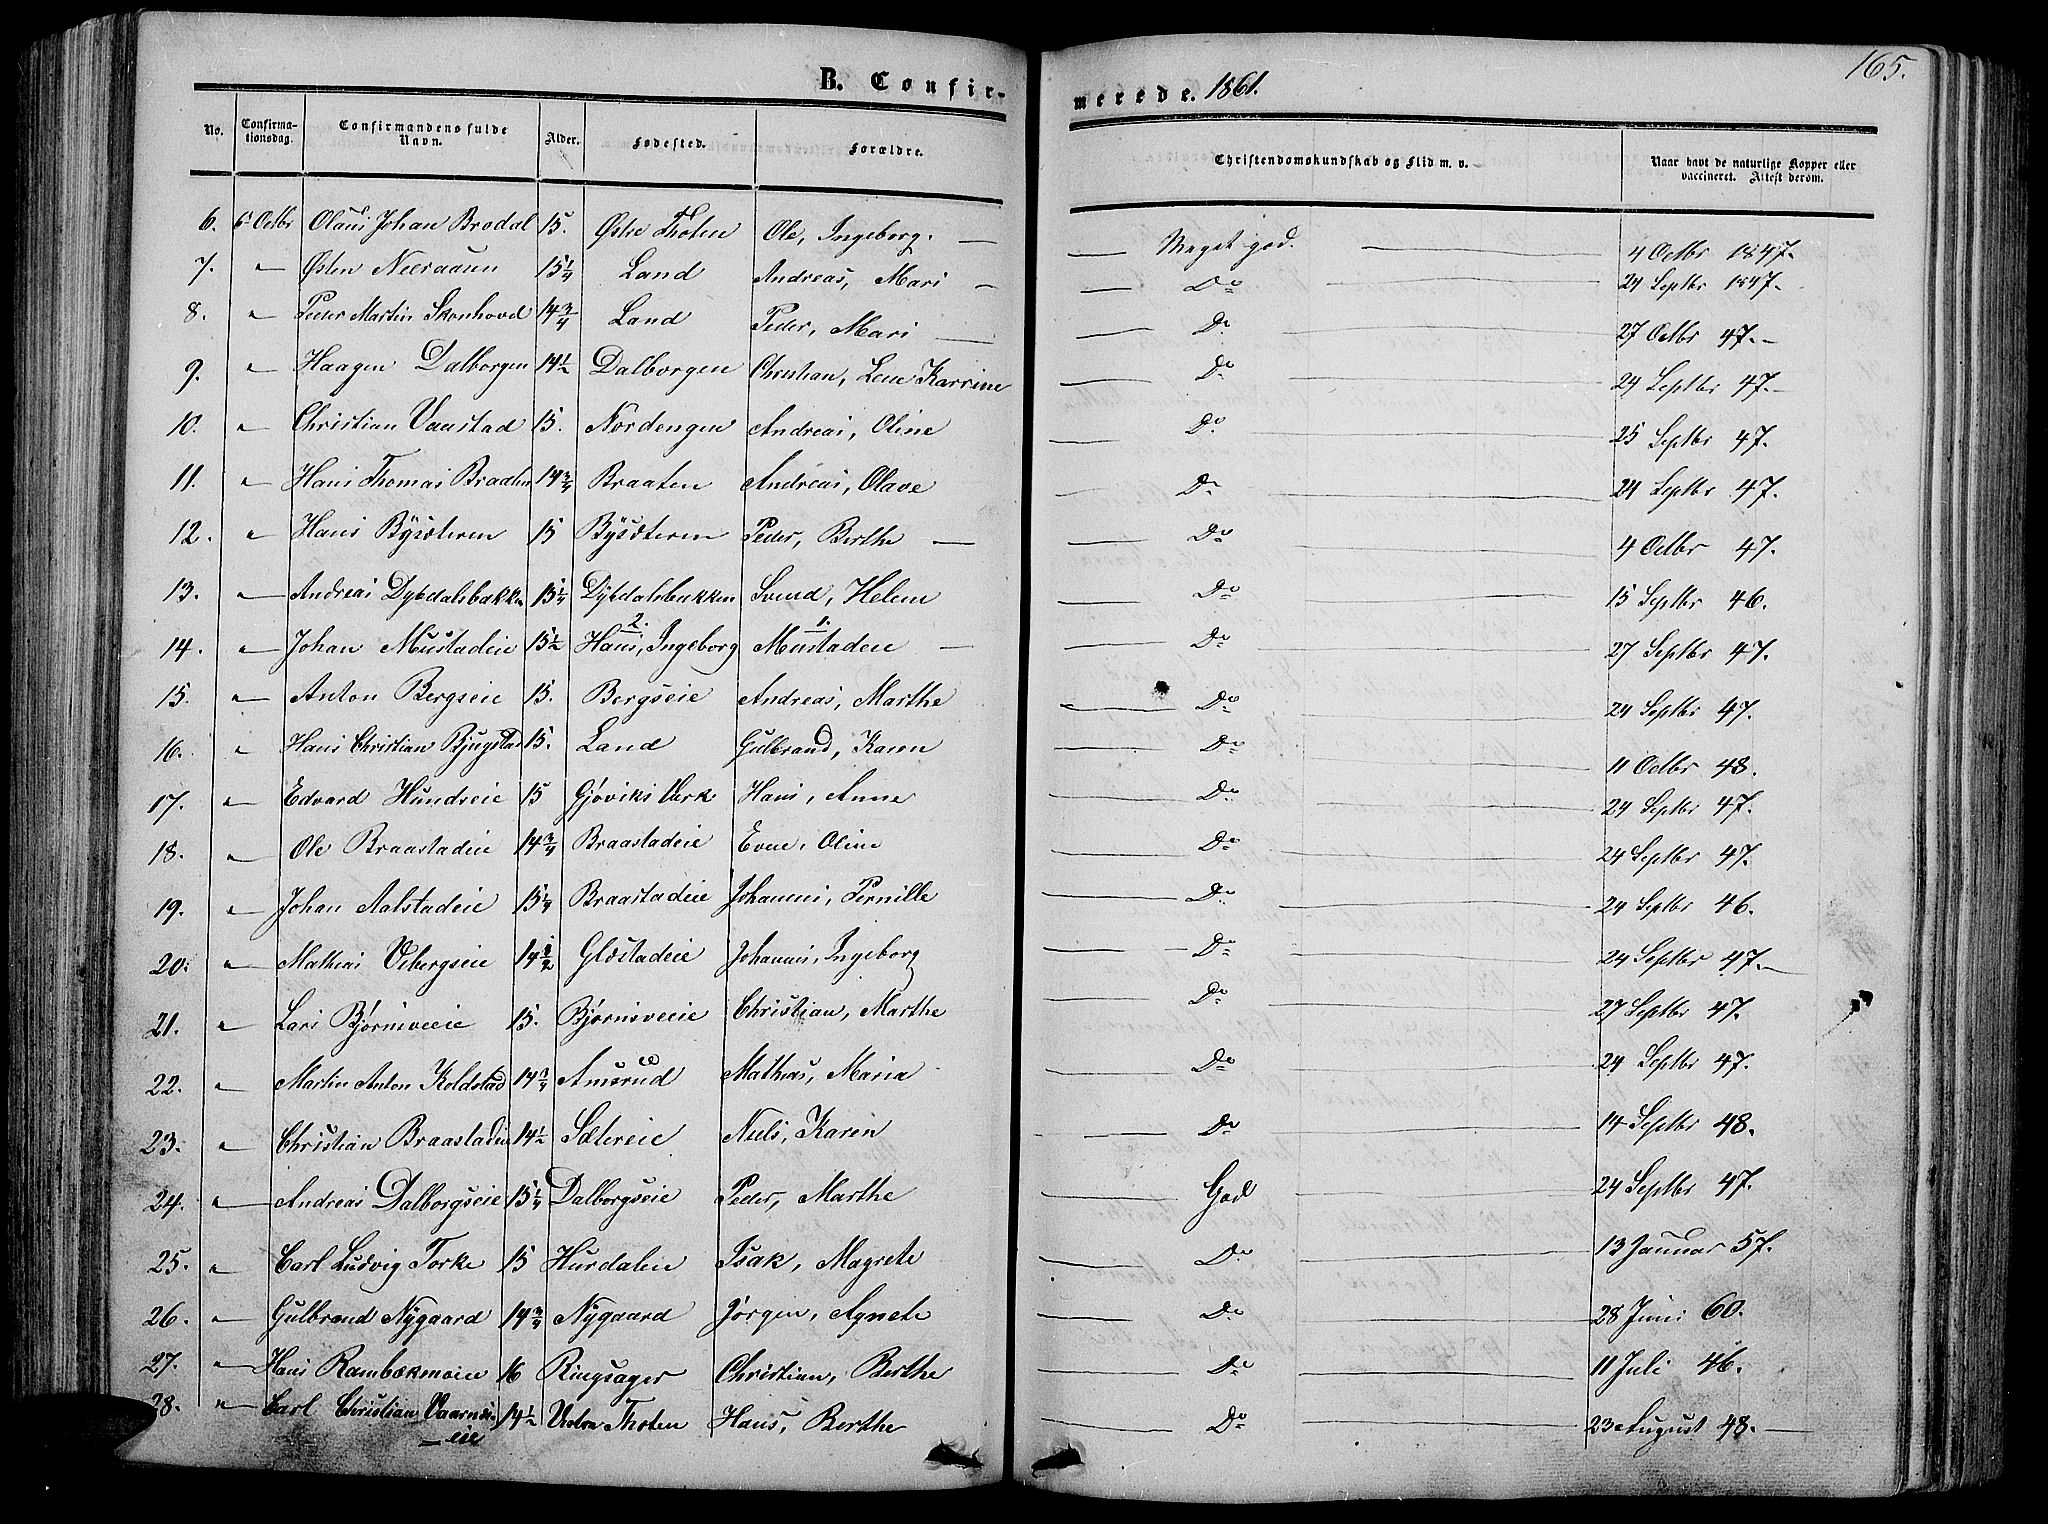 165.
B. Confir-merede. 1861.
No. Confirma-tionsdag. Confirmandens fulde Navn. Alder. Fødested. Forældre. Christendomskundskab og Flid m. v. Naar havt de naturlige Kopper eller vaccineret. Attest derom.
6. 6 Octbr Olaus Johan Brodal 15. Østre Thoten Ole, Ingeborg. — Meget god. 4 Octbr 1847.
7. " Østen Neeraasen 15 1/4 Land Andreas, Mari — Do 24 Septbr 1847.
8. " Peder Martin Skonhovd 14 3/4 Land Peder, Mari — Do 27 Octbr 47.
9. " Haagen Dalborgen 14 1/2 Dalborgen Christian, Lene Karrine Do 24 Septbr 47.
10. " Christian Vaastad 15. Nordengen Andreas, Oline Do 25 Septbr 47.
11. " Hans Thomas Braaten 14 3/4 Braaten Andreas, Olave Do 24 Septbr 47.
12. " Hans Bysæteren 15 Bysæteren Peder, Berthe — Do 4 Octbr 47.
13. " Andreas Dybdalsbakken 15 1/4 Dybdalsbakken Svend, Helene Do 15 Septbr 46.
2. 1.
14. " Johan Mustadeie 15 1/2 Hans, Ingeborg Mustadeie — Do 27 Septbr 47.
15. " Anton Bergseie 15. Bergseie Andreas, Marthe Do 24 Septbr 47.
16. " Hans Christian Bjugstad 15. Land Gulbrand, Karen Do 11 Octbr 48.
17. " Edvard Hundseie 15 Gjøviks Værk Hans, Anne Do 24 Septbr 47.
18. " Ole Braastadeie 14 3/4 Braastadeie Even, Oline Do 24 Septbr 47.
19. " Johan Aalstadeie 15 1/4 Braastadeie Johannes, Pernille Do 24 Septbr 46.
20. " Mathias Vebergseie 14 1/2 Glæstadeie Johannes, Ingeborg Do 24 Septbr 47.
21. " Lars Bjørnsveeie 15. Bjørnsveeie Christian, Marthe Do 27 Septbr 47.
22. " Martin Anton Koldstad 14 3/4 Amsrud Mathias, Maria Do 24 Septbr 47.
23. " Christian Braastadeie 14 1/2 Sætereie Niels, Karen Do 14 Septbr 48.
24. " Andreas Dalborgseie 15 1/4 Dalborgseie Peder, Marthe God 24 Septbr 47.
25. " Carl Ludvig Torke 15 Hurdalen Isak, Magrete Do 13 Januar 57.
26. " Gulbrand Nygaard 14 3/4 Nygaard Jørgen, Agnete Do 28 Juni 60.
27. " Hans Rambækmoeie 16 Ringsager Christian, Berthe Do 11 Juli 46.
28. " Carl Christian Vaarnes- 14 1/2 Vestre Thoten Hans, Berthe Do 23 August 48.
eie